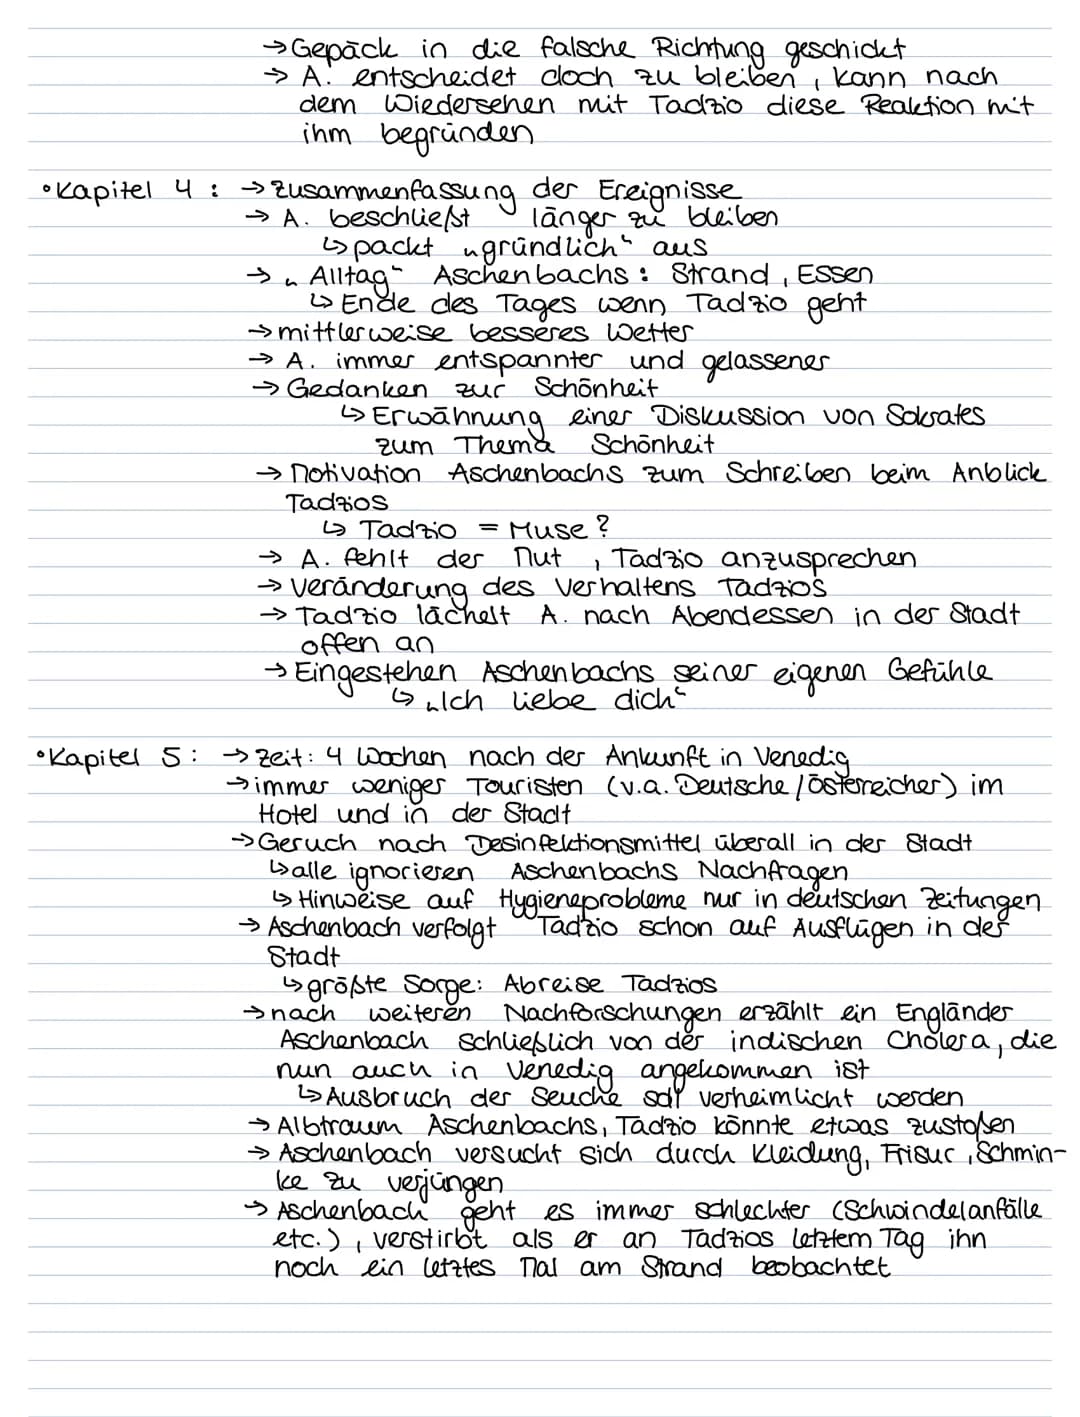 → Gepäck in die falsche Richtung geschickt
→ A. entscheidet doch zu bleiben, kann nach
dem Wiedersehen mit Tadzio diese Reaktion mit
ihm begründen
• Kapitel 4: → Zusammenfassung der Ereignisse
→ A. beschließt länger zu bleiben
↳ packt „gründlich“ aus
→ „Alltag“ Aschenbachs: Strand, Essen
↳ Ende des Tages wenn Tadzio geht
→ mittlerweise besseres Wetter
→ A. immer entspannter und gelassener
→ Gedanken zur Schönheit
↳ Erwähnung einer Diskussion von Sokrates
zum Thema Schönheit
→ Motivation Aschenbachs zum Schreiben beim Anblick
Tadzios
↳ Tadzio = Muse?
→ A. fehlt der Mut, Tadzio anzusprechen
→ Veränderung des Verhaltens Tadzios
→ Tadzio lächelt A. nach Abendessen in der Stadt
offen an
→ Eingestehen Aschenbachs seiner eigenen Gefühle
↳ „Ich liebe dich“
• Kapitel 5: → Zeit: 4 Wochen nach der Ankunft in Venedig
→ immer weniger Touristen (v.a. Deutsche/Österreicher) im
Hotel und in der Stadt
→ Geruch nach Desinfektionsmittel überall in der Stadt
↳ alle ignorieren Aschenbachs Nachfragen
↳ Hinweise auf Hygieneprobleme nur in deutschen Zeitungen
→ Aschenbach verfolgt Tadzio schon auf Ausflügen in der
Stadt
↳ größte Sorge: Abreise Tadzios
→ nach weiteren Nachforschungen erzählt ein Engländer
Aschenbach schließlich von der indischen Cholera, die
nun auch in Venedig angekommen ist
↳ Ausbruch der Seuche soll verheimlicht werden
→ Albtraum Aschenbachs, Tadzio könnte etwas zustoßen
→ Aschenbach versucht sich durch Kleidung, Frisur, Schmin-
ke zu verjüngen
→ Aschenbach geht es immer schlechter (Schwindelanfälle
etc.), verstirbt als er an Tadzios letztem Tag ihn
noch ein letztes Mal am Strand beobachtet